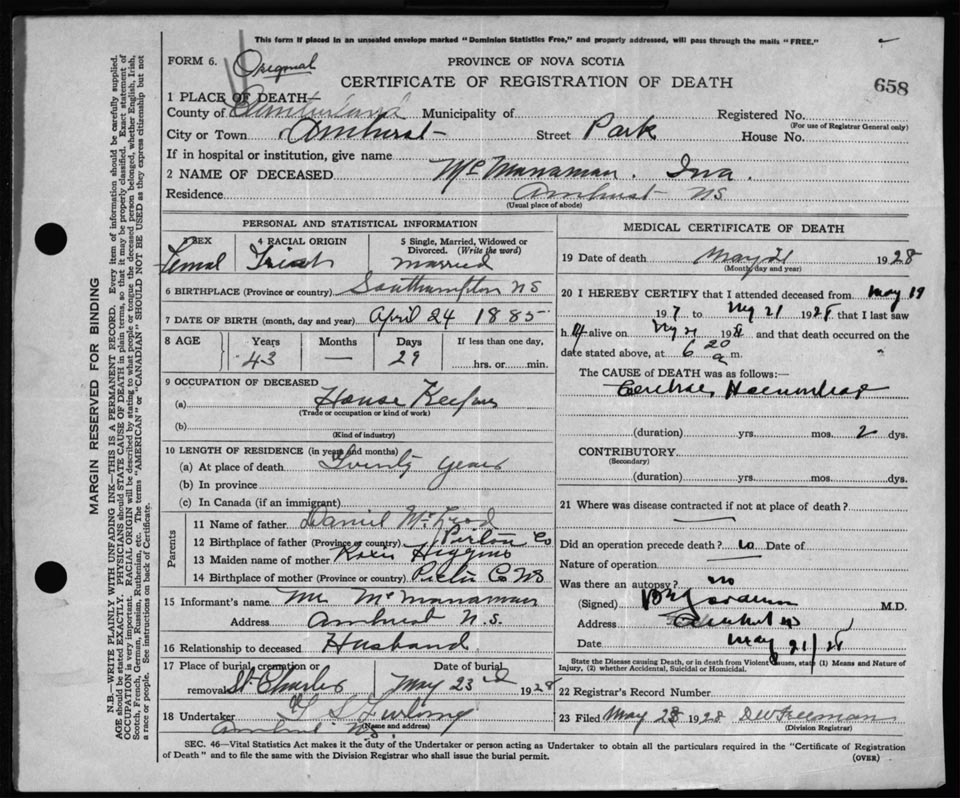 This form if placed in an unsealed envelope marked "Dominion Statistics Free," and properly addressed, will pass through the mails "FREE."
FORM 6. Original PROVINCE OF NOVA SCOTIA
CERTIFICATE OF REGISTRATION OF DEATH 658
1 PLACE OF DEATH
County of Cumberland Municipality of Registered No.
(For use of Registrar General only)
City or Town Amherst Street Park House No.
If in hospital or institution, give name
2 NAME OF DECEASED McManaman. Iva.
Residence Amherst NS
(Usual place of abode)
PERSONAL AND STATISTICAL INFORMATION
3 SEX 4 RACIAL ORIGIN 5 Single, Married, Widowed or Divorced. (Write the word)
Femal Irish married
6 BIRTHPLACE (Province or country) Southampton NS
7 DATE OF BIRTH (month, day and year) April 24 1885
8 AGE Years Months Days If less than one day,
43 — 29 hrs. or min.
9 OCCUPATION OF DECEASED
(a) House Keeper
(Trade or occupation or kind of work)
(b)
(Kind of industry)
10 LENGTH OF RESIDENCE (in years and months)
(a) At place of death Twenty years
(b) In province
(c) In Canada (if an immigrant)
Parents
11 Name of father Daniel
12 Birthplace of father (Province or country) Pictou Co
13 Maiden name of mother Higgins
14 Birthplace of mother (Province or country) Pictu Co NS
15 Informant's name Mr McManaman
Address Amherst N.S.
16 Relationship to deceased Husband
17 Place of burial, cremation or Date of burial
removal St Charles May 23rd 1928
18 Undertaker Furlong
(Name and address)
Amherst NS
MEDICAL CERTIFICATE OF DEATH
19 Date of death May 21 1928
(Month, day and year)
20 I HEREBY CERTIFY that I attended deceased from May 19
192 to My 21 1928 that I last saw
h alive on My 21 192 and that death occurred on the
date stated above, at 6 20 a m.
The CAUSE of DEATH was as follows:
Cerebral Haemorrhage
(duration) yrs. mos. 2 dys.
CONTRIBUTORY
(Secondary)
(duration) yrs. mos. dys.
21 Where was disease contracted if not at place of death?
Did an operation precede death? no Date of
Nature of operation
Was there an autopsy? no
(Signed) M.D.
Address Amherst NS
Date May 21/28
State the Disease causing Death, or in death from Violent Causes, state (1) Means and Nature of Injury, (2) whether Accidental, Suicidal or Homicidal.
22 Registrar's Record Number
23 Filed May 28 1928 DW Freeman
(Division Registrar)
SEC. 46—Vital Statistics Act makes it the duty of the Undertaker or person acting as Undertaker to obtain all the particulars required in the "Certificate of Registration
of Death" and to file the same with the Division Registrar who shall issue the burial permit. (OVER)
MARGIN RESERVED FOR BINDING
N.B.—WRITE PLAINLY WITH UNFADING INK—THIS IS A PERMANENT RECORD. Every item of information should be carefully supplied.
AGE should be stated EXACTLY. PHYSICIANS should STATE CAUSE OF DEATH in plain terms, so that it may be properly classified. Exact statement of
OCCUPATION is very important. RACIAL ORIGIN will be described by stating to what people or tongue the deceased person belonged, whether English, Irish,
Scotch, French, German, Russian, Ruthenian, etc. The terms "AMERICAN" or "CANADIAN" SHOULD NOT BE USED as they express citizenship but not
a race or people. See instructions on back of Certificate.